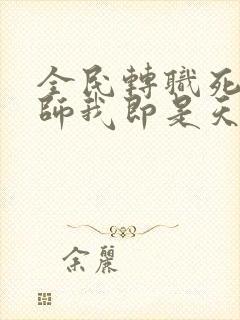 全民轉職死
師我即是天
余麗